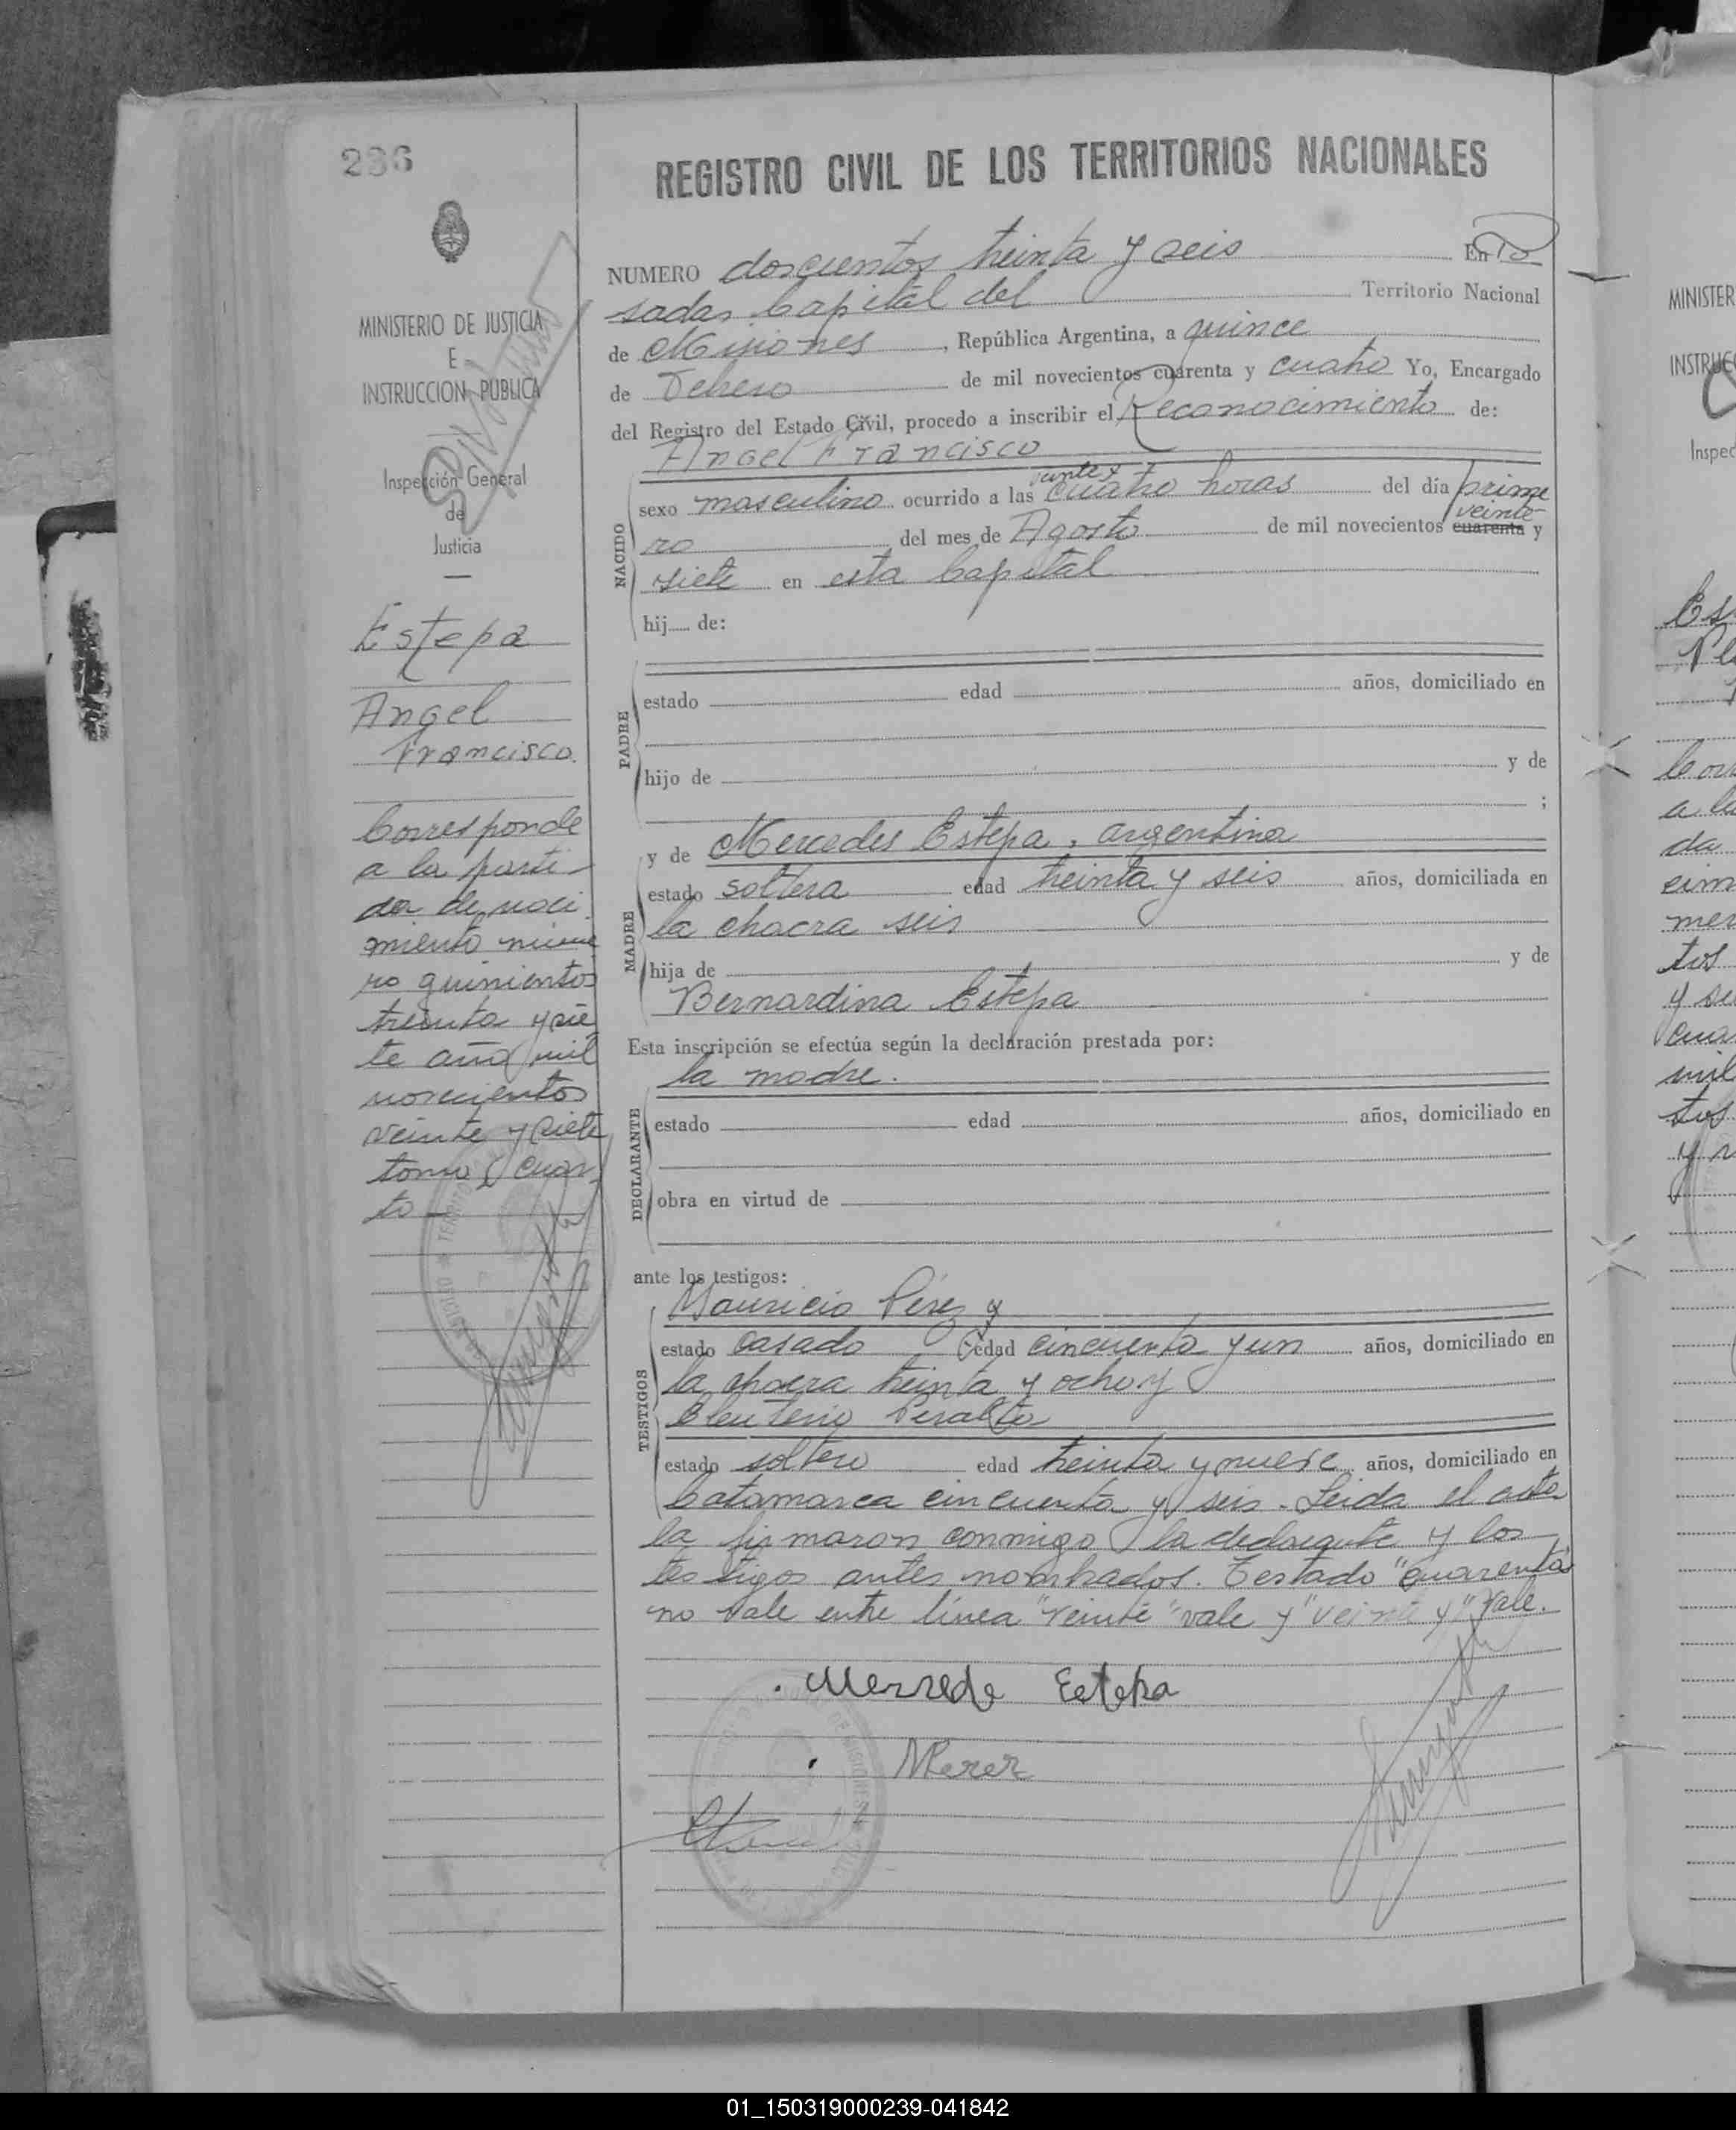 236
REGISTRO CIVIL DE LOS TERRITORIOS NACIONALES
NUMERO doscientos treinta y seis En Po
sadas Capital del Territorio Nacional
de Misiones, República Argentina, a quince
de Febrero de mil novecientos cuarenta y cuatro Yo, Encargado
del Registro del Estado Civil, procedo a inscribir el Reconocimiento de:
Angel Francisco
veinte y
sexo masculino ocurrido a las cuatro horas del día prime
veinte
ro del mes de Agosto de mil novecientos cuarenta y
siete en esta Capital
NACIDO
hij de:
estado edad años, domiciliado en
PADRE
hijo de y de
;
y de Mercedes Estepa, argentina
estado soltera edad treinta y seis años, domiciliada en
la chacra seis
MADRE
hija de y de
Bernardina Estepa
Esta inscripción se efectúa según la declaración prestada por:
la madre.
estado edad años, domiciliado en
DECLARANTE
obra en virtud de
ante los testigos:
Mauricio Pérez y
estado casado edad cincuenta y un años, domiciliado en
la chacra treinta y ocho y
TESTIGOS
Eleuterio Peralta
estado soltero edad treinta y nueve años, domiciliado en
Catamarca cincuenta y seis. Leida el acta
la firmaron conmigo la declarante y los
testigos antes nombrados. Testado "cuarenta"
no vale entre línea "veinte" vale y "veinte y" vale.
Merzede Estepa
MPerez
MINISTERIO DE JUSTICIA
E
INSTRUCCION PUBLICA
Inspección General
de
Justicia
Estepa
Angel
Francisco.
Corresponde
a la parti-
da de naci
miento núme
ro quinientos
treinta y sie
te año mil
novecientos
veinte y siete
tomo cuar
to-
MINISTER
INSTRUC
Inspec
da
mer
tos
y se
mil
tos
01_150319000239-041842